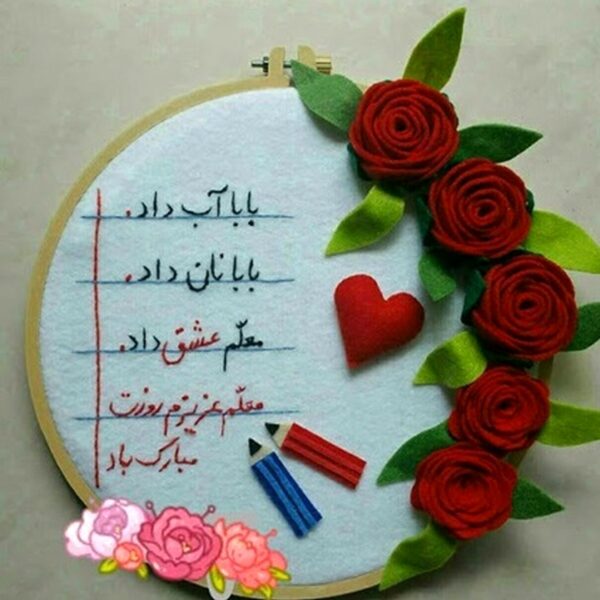 بابا آب داد.
بابا نان داد.
معلّم عشق داد.
معلّم عزیزم روزت
مبارک باد